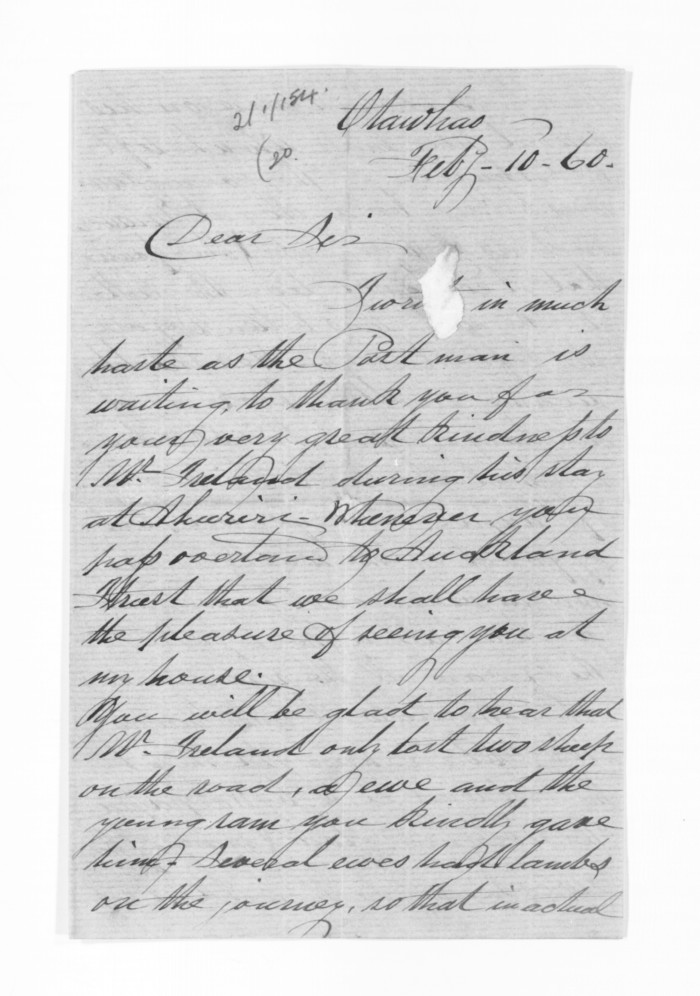 2/1/154.
(20.
Otawhao
Feby - 10 - 60.
Dear Sir
I in much
haste as the Post man is
waiting, to thank you for
your very great kindness to
Mr. Ireland during his stay
at Ahuriri - Whenever you
pass overland to Auckland
I trust that we shall have
the pleasure of seeing you at
my house.
You will be glad to hear that
Mr. Ireland only lost two sheep
on the road, a ewe and the
young ram you kindly gave
him. Several ewes had lambs
on the journey, so that in actual